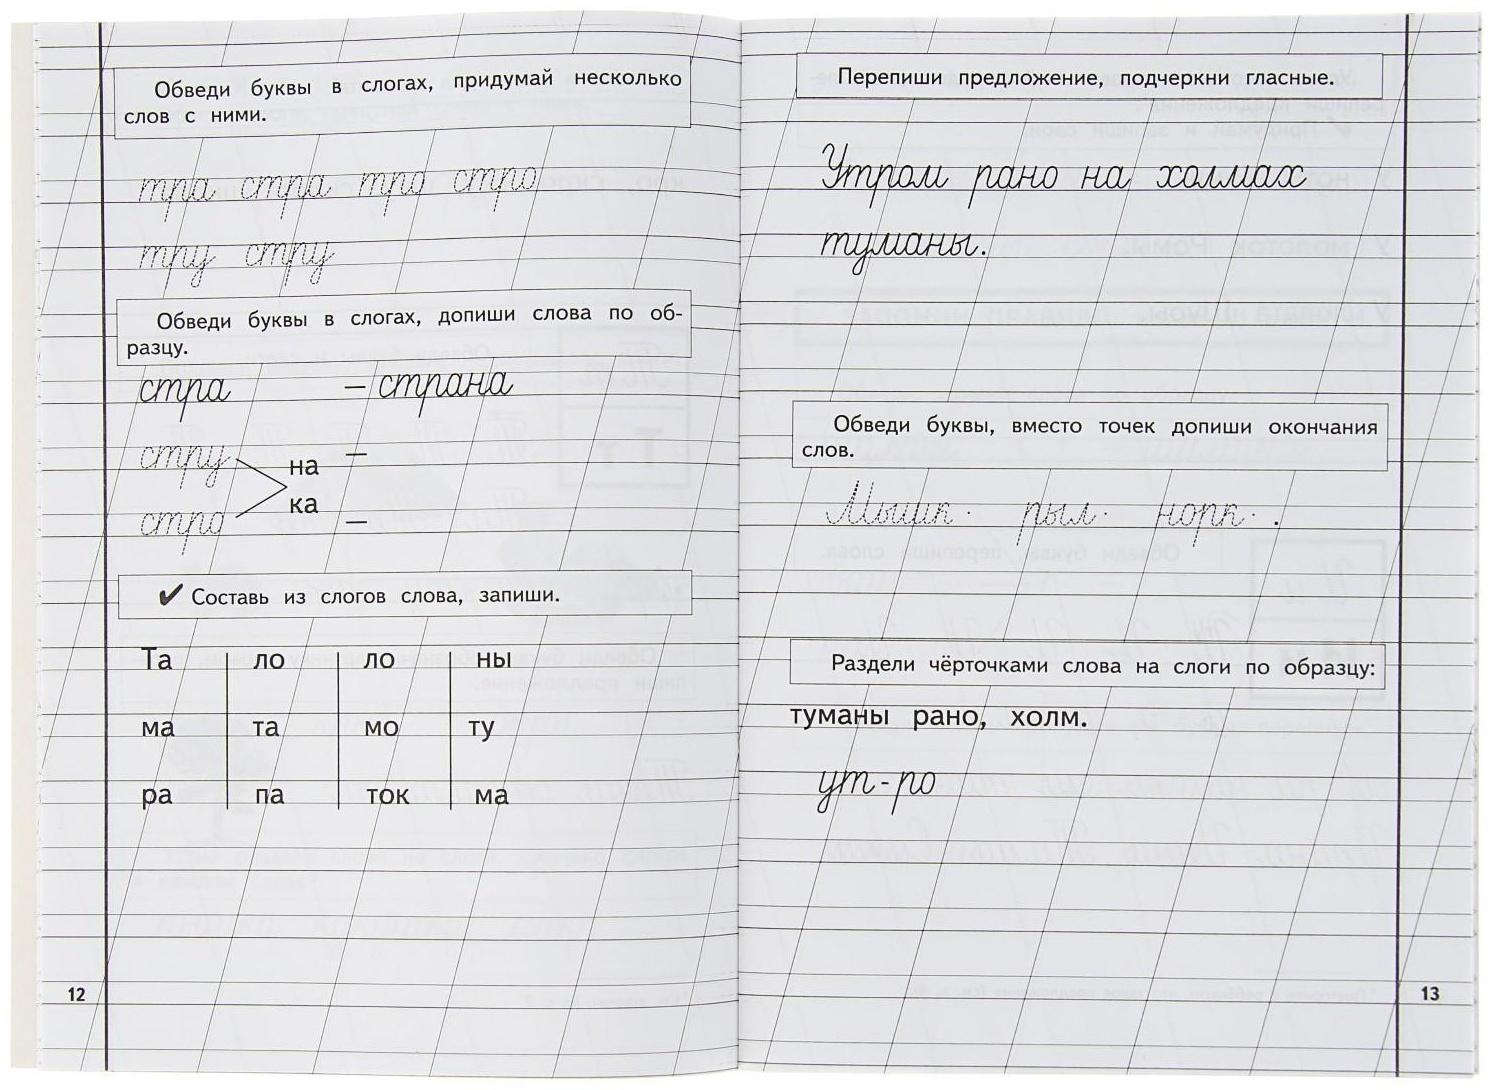 Обведи буквы в слогах, придумай несколько
слов с ними.
тра стра тро стро
тру стру
Обведи буквы в слогах, допиши слова по об-
разцу.
стра – страна
стру –
на
ка
стро –
✔ Составь из слогов слова, запиши.
Та ло ло ны
ма та мо ту
ра па ток ма
12
Перепиши предложение, подчеркни гласные.
Утром рано на холмах
туманы.
Обведи буквы, вместо точек допиши окончания
слов.
Мышк. рыл. норк. .
Раздели чёрточками слова на слоги по образцу:
туманы рано, холм.
ут-ро
13